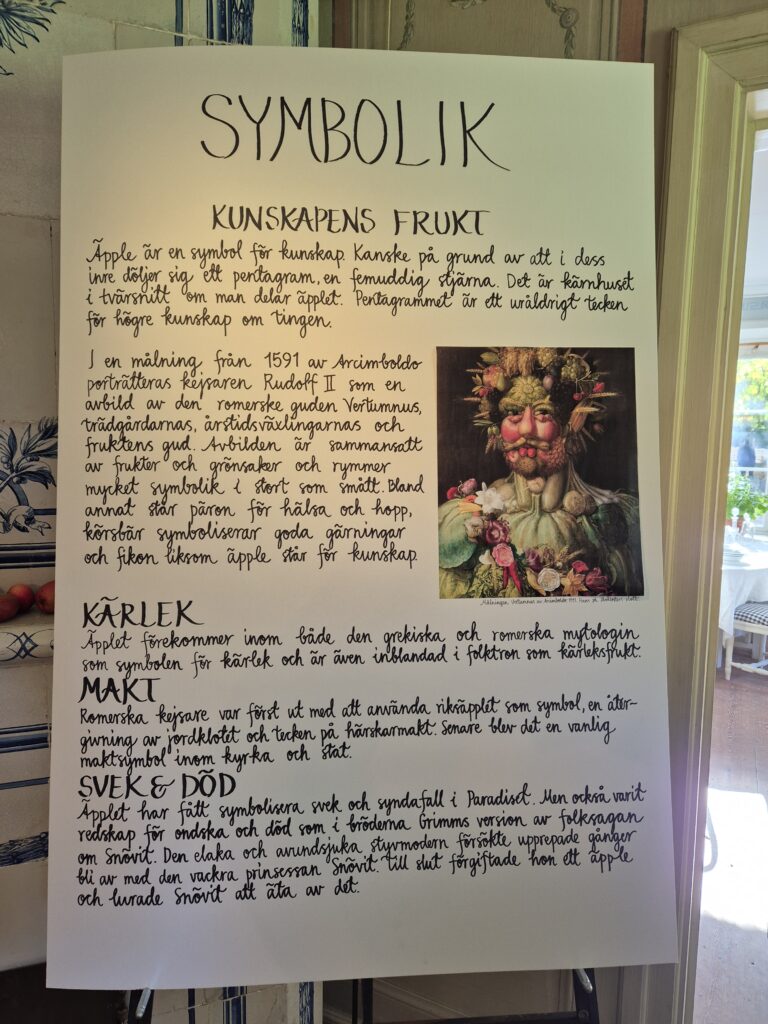 SYMBOLIK
KUNSKAPENS FRUKT
Äpple är en symbol för kunskap. Kanske på grund av att i dess
inre döljer sig ett pentagram, en femuddig stjärna. Det är kärnhuset
i tvärsnitt om man delar äpplet. Pentagrammet är ett uråldrigt tecken
för högre kunskap om tingen.
I en målning från 1591 av Arcimboldo
porträtteras kejsaren Rudolf II som en
avbild av den romerske guden Vertumnus,
trädgårdarnas, årstidsväxlingarnas och
fruktens gud. Avbilden är sammansatt
av frukter och grönsaker och rymmer
mycket symbolik i stort som smått. Bland
annat står päron för hälsa och hopp,
körsbär symboliserar goda gärningar
och fikon liksom äpple står för kunskap.
Målningen Vertumnus av Arcimboldo 1591. Finns på Skoklosters slott.
KÄRLEK
Äpplet förekommer inom både den grekiska och romerska mytologin
som symbolen för kärlek och är även inblandad i folktron som kärleksfrukt.
MAKT
Romerska kejsare var först ut med att använda riksäpplet som symbol, en åter-
givning av jordklotet och tecken på härskarmakt. Senare blev det en vanlig
maktsymbol inom kyrka och stat.
SVEK & DÖD
Äpplet har fått symbolisera svek och syndafall i Paradiset. Men också varit
redskap för ondska och död som i bröderna Grimms version av folksagan
om Snövit. Den elaka och avundsjuka styvmodern försökte upprepade gånger
bli av med den vackra prinsessan Snövit. Till slut förgiftade hon ett äpple
och lurade Snövit att äta av det.